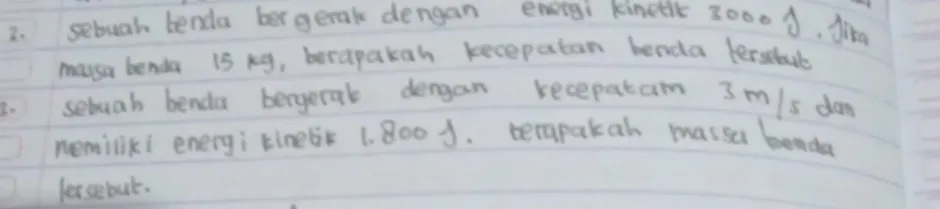 2. sebuah benda bergerak dengan energi kinetik 3000 J. Jika
massa benda 15 kg, berapakah kecepatan benda tersebut
3. sebuah benda bergerak dengan kecepatam 3 m/s dan
memiliki energi kinetik 1.800 J. berapakah massa benda
tersebut.